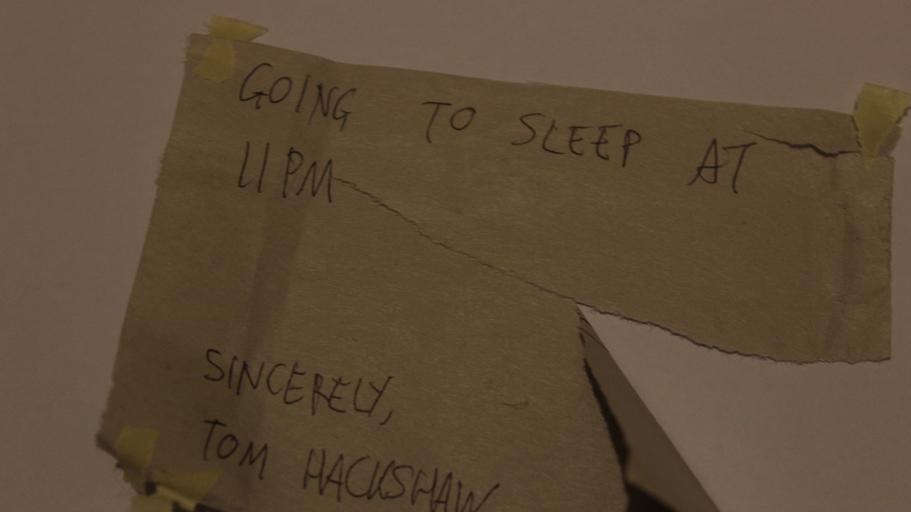 GOING TO SLEEP AT
11PM
SINCERELY,
TOM HACKSHAW